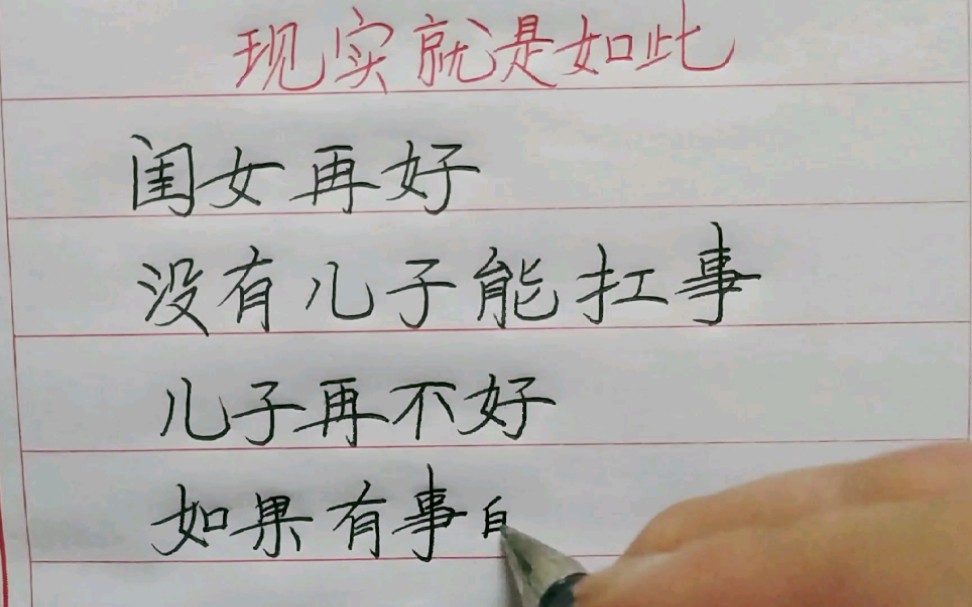 现实就是如此
闺女再好
没有儿子能扛事
儿子再不好
如果有事